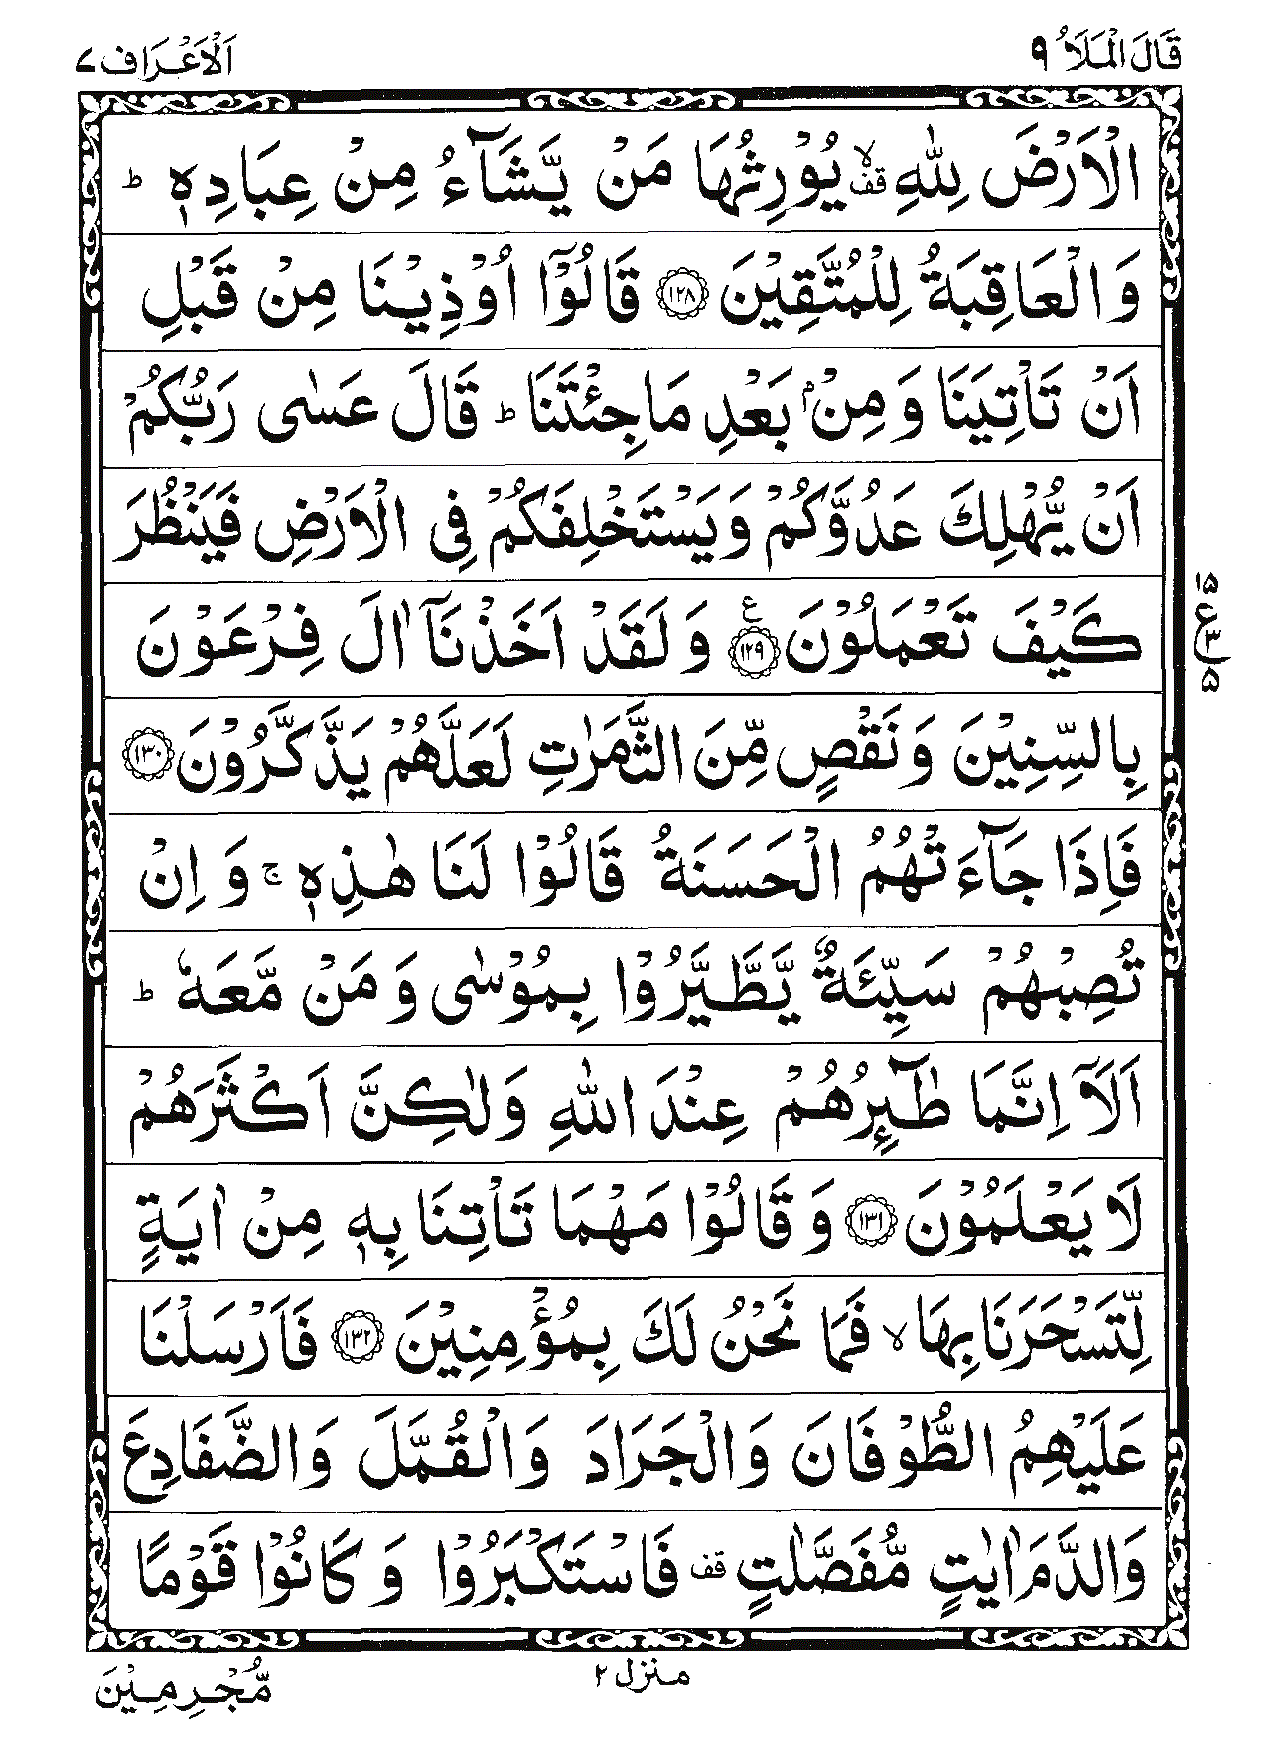 قَالَ الْمَلَاُ ٩
اَلْاَعْرَاف ٧
الْاَرْضَ لِلّٰهِ ۙقف يُوْرِثُهَا مَنْ يَّشَآءُ مِنْ عِبَادِهٖ ؕ
وَالْعَاقِبَةُ لِلْمُتَّقِيْنَ ﴿۱۲۸﴾ قَالُوْٓا اُوْذِيْنَا مِنْ قَبْلِ
اَنْ تَاْتِيَنَا وَ مِنْۢ بَعْدِ مَا جِئْتَنَا ؕ قَالَ عَسٰى رَبُّكُمْ
اَنْ يُّهْلِكَ عَدُوَّكُمْ وَيَسْتَخْلِفَكُمْ فِى الْاَرْضِ فَيَنْظُرَ
كَيْفَ تَعْمَلُوْنَ ﴿۱۲۹﴾ ع وَلَقَدْ اَخَذْنَآ اٰلَ فِرْعَوْنَ
۱۵
ع
۳
۵
بِالسِّنِيْنَ وَنَقْصٍ مِّنَ الثَّمَرٰتِ لَعَلَّهُمْ يَذَّكَّرُوْنَ ﴿۱۳۰﴾
فَاِذَا جَآءَتْهُمُ الْحَسَنَةُ قَالُوْا لَنَا هٰذِهٖ ۚ وَ اِنْ
تُصِبْهُمْ سَيِّئَةٌ يَّطَّيَّرُوْا بِمُوْسٰى وَ مَنْ مَّعَهٗ ؕ
اَلَآ اِنَّمَا طٰٓئِرُهُمْ عِنْدَ اللّٰهِ وَلٰكِنَّ اَكْثَرَهُمْ
لَا يَعْلَمُوْنَ ﴿۱۳۱﴾ وَ قَالُوْا مَهْمَا تَاْتِنَا بِهٖ مِنْ اٰيَةٍ
لِّتَسْحَرَنَا بِهَا ۙ فَمَا نَحْنُ لَكَ بِمُؤْمِنِيْنَ ﴿۱۳۲﴾ فَاَرْسَلْنَا
عَلَيْهِمُ الطُّوْفَانَ وَالْجَرَادَ وَالْقُمَّلَ وَالضَّفَادِعَ
وَالدَّمَ اٰيٰتٍ مُّفَصَّلٰتٍ قف فَاسْتَكْبَرُوْا وَ كَانُوْا قَوْمًا
منزل ۲
مُّجْرِمِيْنَ